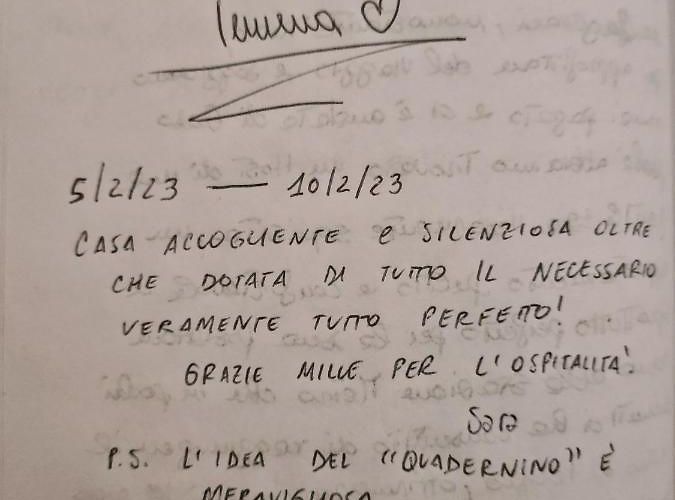 5/2/23 — 10/2/23
CASA ACCOGLIENTE e SILENZIOSA OLTRE
CHE DOTATA DI TUTTO IL NECESSARIO
VERAMENTE TUTTO PERFETTO!
GRAZIE MILLE PER L'OSPITALITA'.
Sara
P.S. L'IDEA DEL "QUADERNINO" È
MERAVIGLIOSA